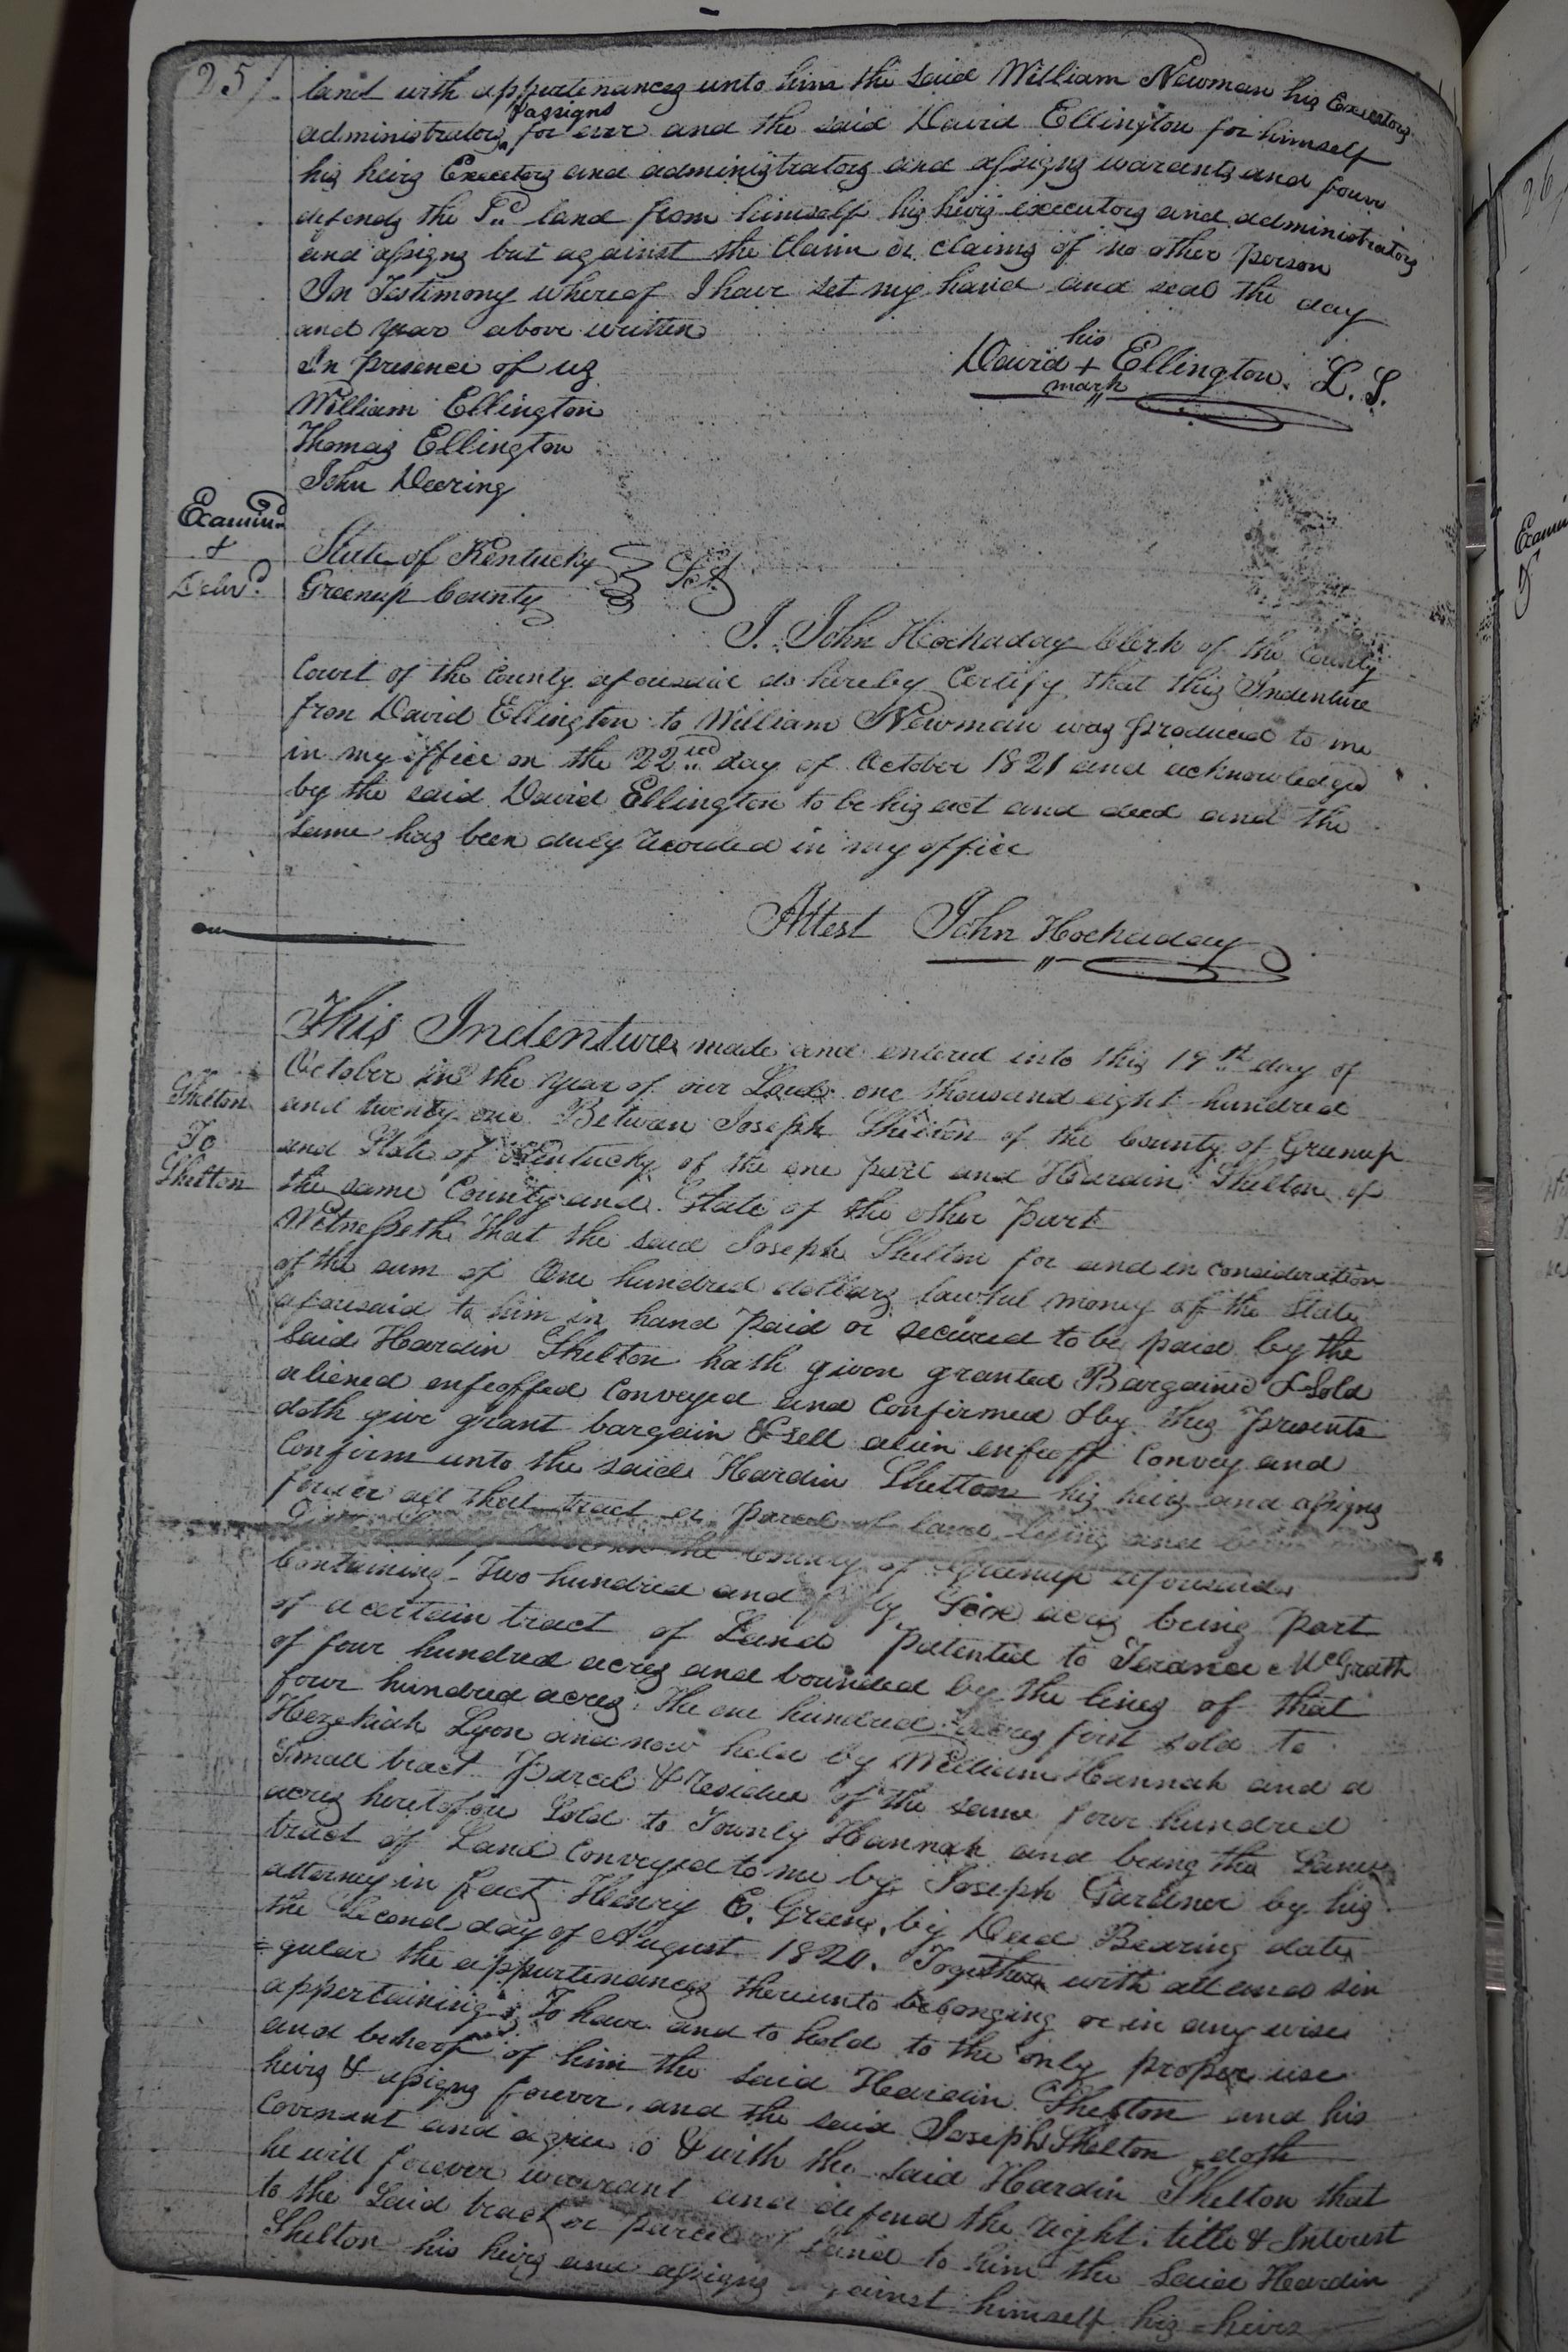 25
land with appurtenances unto him the said William Newman his Executors
& assigns
administrators for ever and the said David Ellington for himself
his heirs Executors and administrators and assigns warants and fourever
defends the Sd land from himself his heirs executors and administrators
and assigns but against the Claim or claims of no other person
In Testimony whereof I have set my hand and seal the day
and year above written
In presence of us
his
David + Ellington. L. S.
mark
William Ellington
Thomas Ellington
John Deering
Examind
&
Delvd.
State of Kentucky
Greenup County
Sct
I. John Hockaday Clerk of the County
Court of the County afouresaid do hereby Certify that this Indenture
from David Ellington to William Newman was produced to me
in my office on the 22nd day of October 1821 and acknowledged
by the said David Ellington to be his act and deed and the
same has been duly recorded in my office
Attest John Hockaday
This Indenture made and entered into this 19th day of
October in the year of our Lord one thousand eight hundred
and twenty one Between Joseph Shelton of the County of Greenup
Shelton
To
Shelton
and State of Kentucky of the one part and Hardin Shelton of
the same County and State of the other Part
Witnesseth that the said Joseph Shelton for and in consideration
of the sum of One hundred dollars lawful money of the State
afouresaid to him in hand paid or secured to be paid by the
said Hardin Shelton hath given granted Bargained & Sold
aliened enfeoffed Conveyed and Confirmed & by thes presents
doth give grant bargain & sell alien enfeoff Convey and
Confirm unto the said Hardin Shelton his heirs and assigns
fourever all that tract or parcel of land lying and being
in the County of Greenup afouresaid
Containing Two hundred and acres being part
of a certain tract of Land patented to Terance McGrath
of four hundred acres and bounded by the lines of that
four hundred acres: the one hundred acres first sold to
Hezekiah Lyon and now held by William Hannah and a
small tract Parcel & residue of the same four hundred
acres heretofore Sold to Townly Hannah and being the same
tract of Land Conveyed to me by Joseph Gardner by his
attorney in fact Henry E. Green, by Deed Bearing date
the Second day of August 1820. Together with all and sin
=gular the appurtenances thereunto belonging or in any wise
appertaining; To have and to hold to the only proper use
and behoof of him the said Hardin Shelton and his
heirs & assigns forever. and the said Joseph Shelton doth
Covenant and agree to & with the said Hardin Shelton that
he will forever warrant and defend the right: title & Interest
to the said tract or parcel of Land to him the said Hardin
Shelton his heirs and assigns against himself his heirs